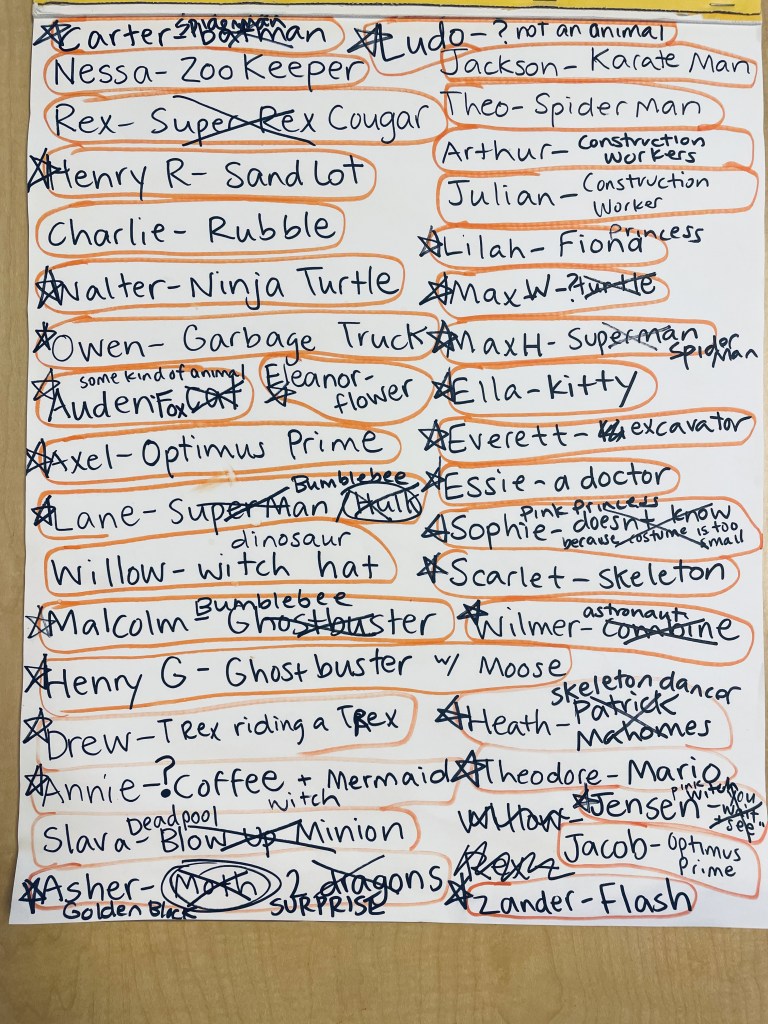 Spiderman
Carter- Batman
Nessa- Zoo Keeper
Rex- Super Rex Cougar
Henry R- Sand Lot
Charlie- Rubble
Walter- Ninja Turtle
Owen- Garbage Truck
some kind of animal
Auden Fox Cat
Eleanor-
flower
Axel- Optimus Prime
Bumblebee
Lane- Superman / Hulk
dinosaur
Willow- witch hat
Bumblebee
Malcolm- Ghostbuster
Henry G- Ghostbuster w/ Moose
Drew- T Rex riding a T Rex
Annie- ? Coffee + Mermaid
witch
Deadpool
Slava- Blow Up Minion
Asher- Moth 2 dragons
Golden Block SURPRISE
Ludo- ? not an animal
Jackson- Karate Man
Theo- Spider Man
Arthur- Construction
Workers
Julian- Construction
Worker
Princess
Lilah- Fiona
Max W- ? turtle
Max H- Superman
Spider
man
Ella- kitty
Everett- excavator
Essie- a doctor
Pink Princess
Sophie- doesn't know
because costume is too
small
Scarlet- skeleton
astronaut
Wilmer- combine
skeleton dancer
Heath- Patrick
Mahomes
Theodore- Mario
Willow-
pink witch
Jensen- "you
wait
see"
Rex
Jacob- Optimus
Prime
Zander- Flash